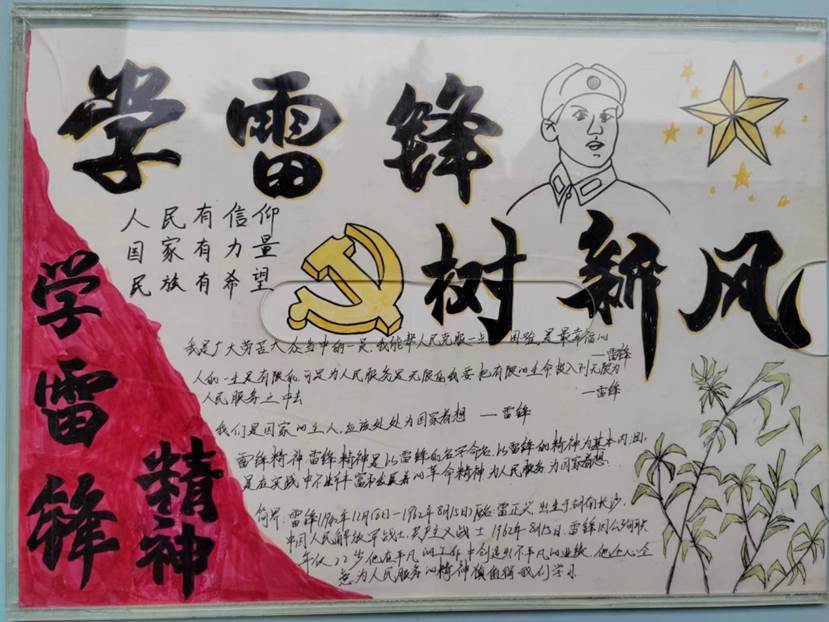 学雷锋
树新风
人民有信仰
国家有力量
民族有希望
学雷锋
精神
我是广大劳苦大众当中的一员,我能帮人民克服一点困难,是最幸福的
—雷锋
人的一生是有限的,可是为人民服务是无限的我要把有限的生命投入到无限为
人民服务之中去
—雷锋
我们是国家的主人,应该处处为国家着想 —雷锋
雷锋精神,雷锋精神是以雷锋的名字命名,以雷锋的精神为基本内涵,
是在实践中不断丰富和发展着的革命精神为人民服务为国家着想
简介:雷锋(1940年12月18日—1962年8月15日)原名:雷正兴 出生于湖南长沙,
中国人民解放军战士,共产主义战士 1962年8月15日,雷锋因公殉职
年仅22岁他在平凡的工作中创造出不平凡的业绩,他全心全
意为人民服务的精神值得我们学习